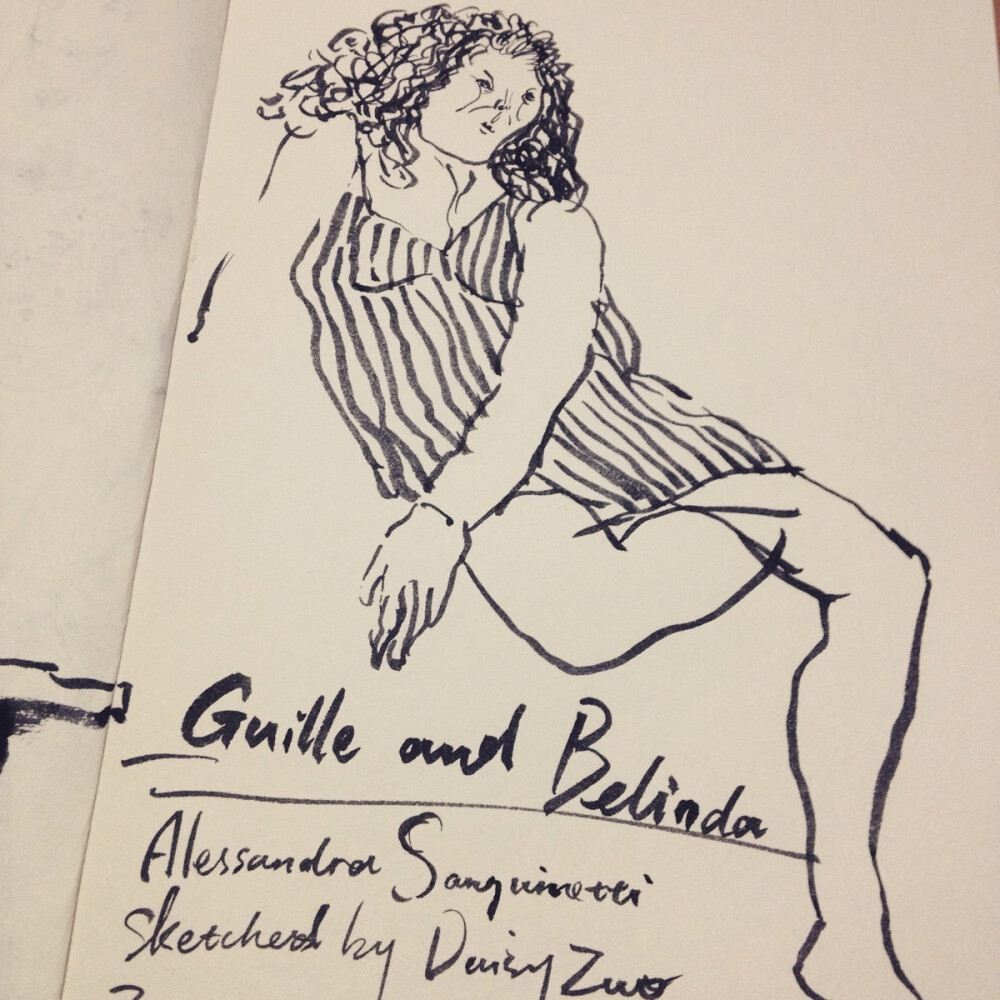 Guille and Belinda
Alessandra Sanguinetti
Sketched by Daisy Zuo